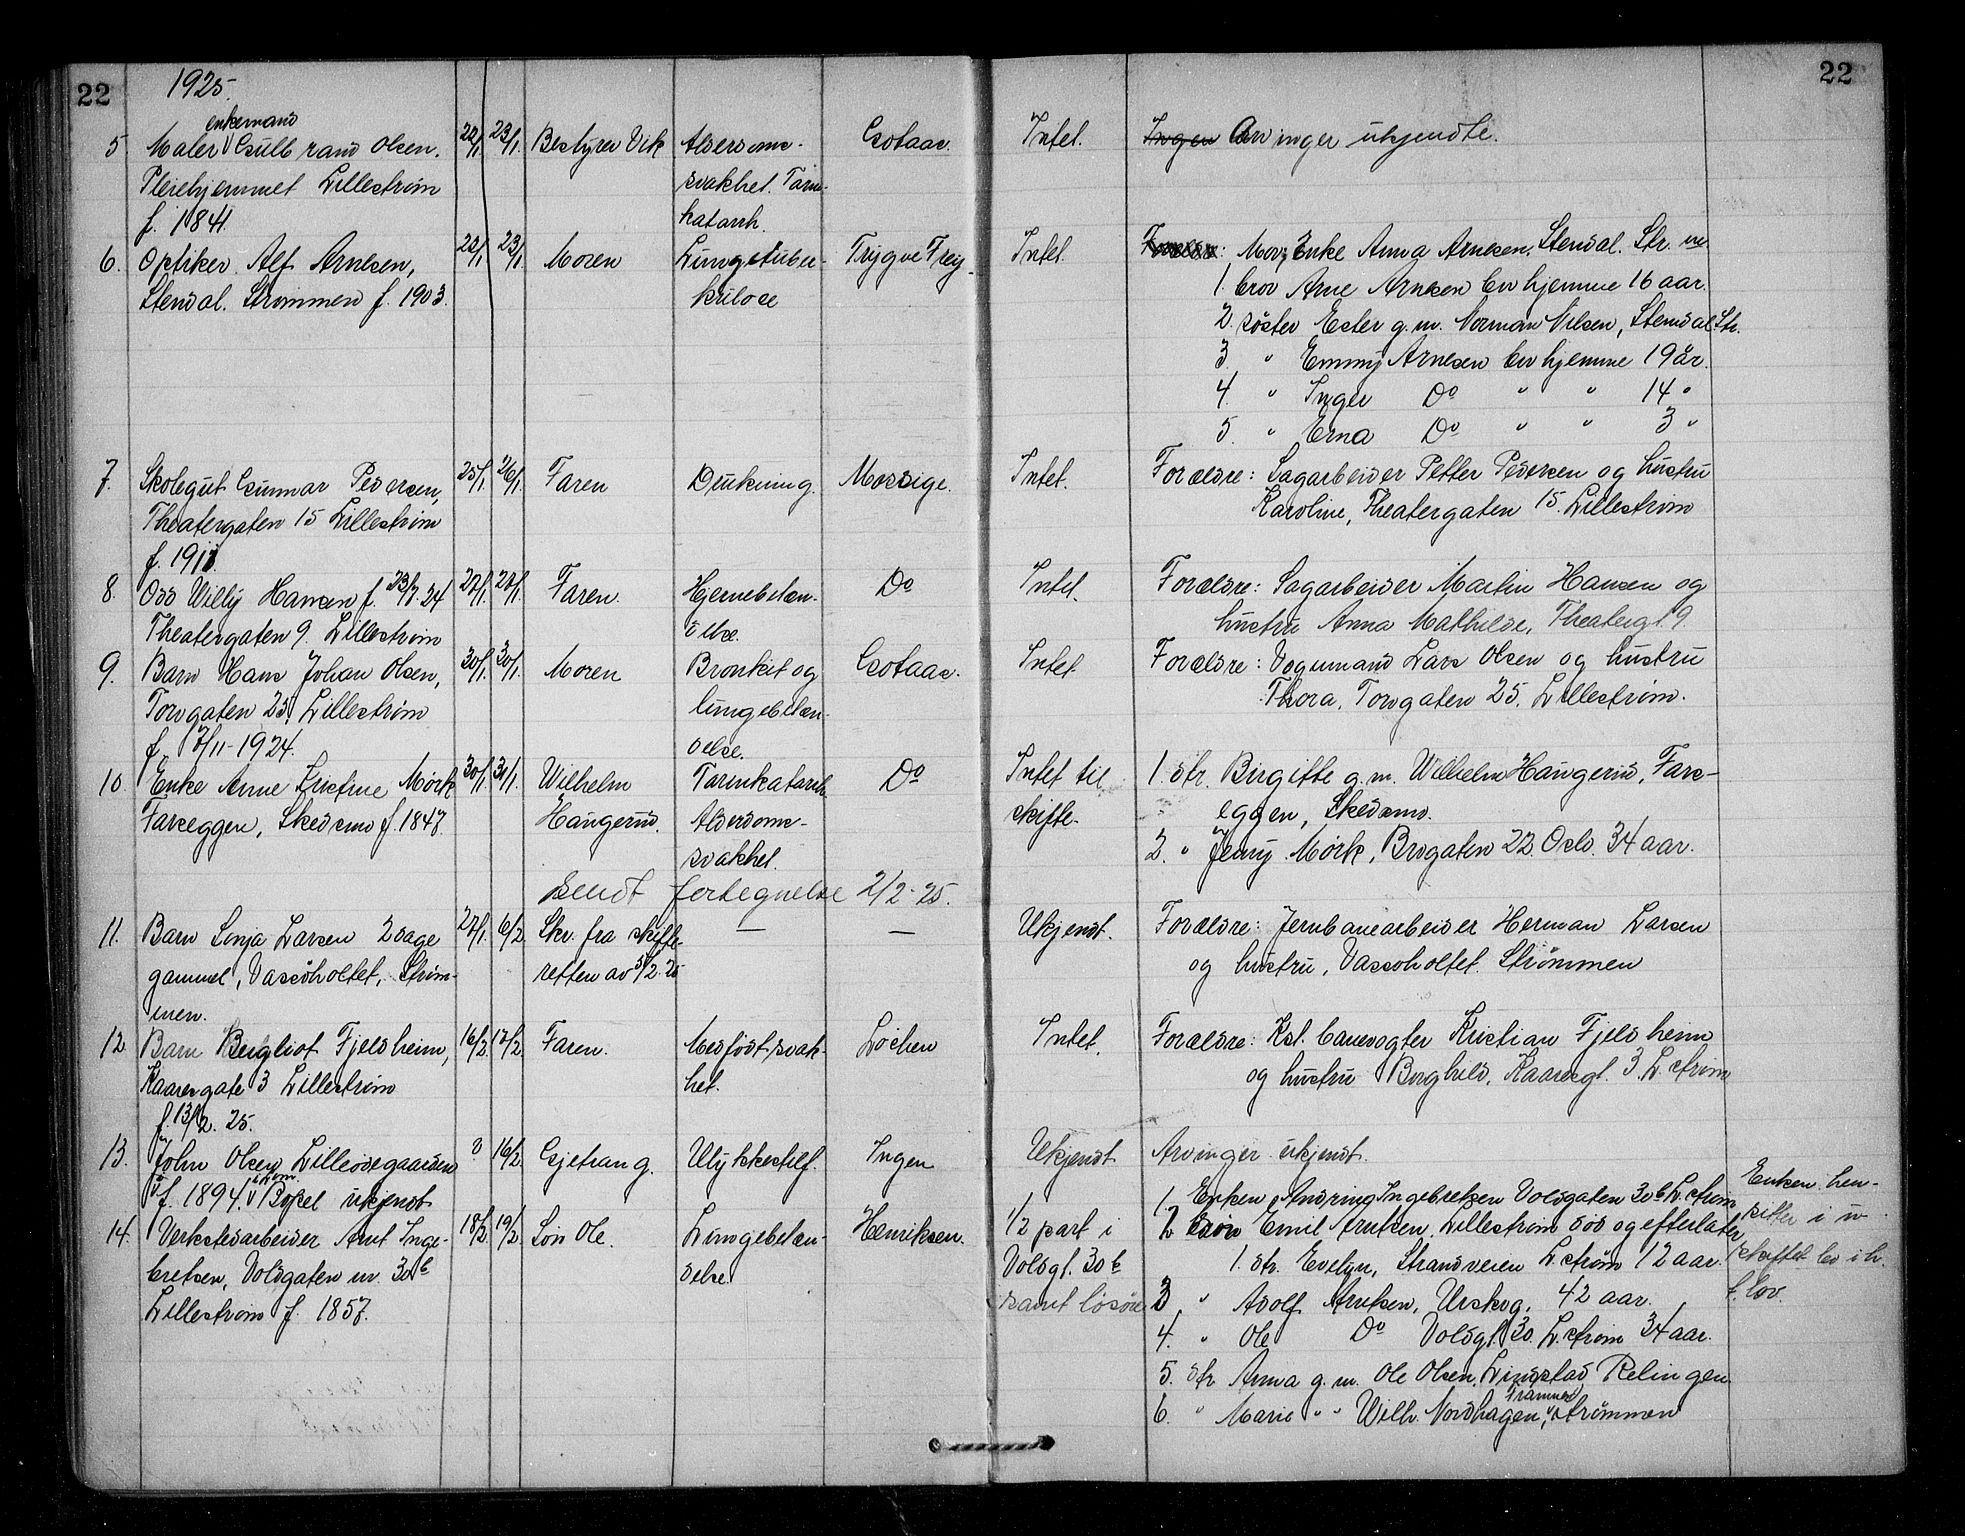 22 1925. 22
enkemand
5 Maler Gulbrand Olsen. 22/1 23/1 Bestyrer Vik Alderdoms- Gotaas. Intet. Ingen Arvinger ukjendte.
Pleiehjemmet Lillestrøm svakhet. Tarm-
f. 1841. katarrh.
6. Optiker Alf Arnesen, 22/1 23/1 Moren Lungetuber- Trygve Intet. Mor, Enke Anna Arnesen, Stendal. Str.
Stendal. Strømmen f. 1903. kulose 1. bror Arne Arnesen bor hjemme 16 aar.
2. søster Ester g.m. Norman Nilsen, Stendal. Str.
3 " Emmy Arnesen bor hjemme 19 år.
4. " Inger Do " " 14 "
5. " Erna Do " " 3 "
7. Skolegut Gunnar Pedersen, 25/1 26/1 Faren Drukning. Mossige. Intet. Forældre: Sagarbeider Petter Pedersen og hustru
Theatergaten 15 Lillestrøm Karoline, Theatergaten 15. Lillestrøm
f. 1911.
8. Odd Willy Hansen f. 23/7.24 27/1 27/1 Faren. Hjernebetæn- Do Intet. Forældre: Sagarbeider Martin Hansen og
Theatergaten 9. Lillestrøm delse. hustru Anna Mathilde, Theatergt. 9.
9. Barn Hans Johan Olsen, 30/1 30/1 Moren Bronkit og Gotaas. Intet Forældre: Vognmand Lars Olsen og hustru
Torvgaten 25, Lillestrøm lungebetæn- Thora, Torvgaten 25, Lillestrøm.
f. 7/11-1924. delse.
10 Enke Anne Kristine Mørk 30/1 31/1 Wilhelm Tarmkatarrh Do Intet til 1. dtr. Birgitte g.m. Wilhelm Haugerud, Fars-
Farseggen, Skedsmo f. 1847. Haugerud. Alderdoms- skifte. eggen, Skedsmo.
svakhet. 2. " Jenny Mørk, Brogaten 22. Oslo. 34 aar.
Sendt fortegnelse 2/2-25.
11. Barn Sonja Larsen 2 dage 27/1 6/2 Skr. fra skifte- — — Ukjendt. Forældre: Jernbanearbeider Herman Larsen
gammel, Vassøholtet, Strøm- retten av 5/2 25 og hustru, Vassøholtet. Strømmen
men.
12. Barn Bergliot Fjeldheim, 16/2 17/2 Faren. Medfødt svak- Løchen Intet. Forældre: Kst. banevogter Kristian Fjeldheim
Kaaresgate 3 Lillestrøm het. og hustru Borghild, Kaaresgt. 3. L.strøm
f. 13/2. 25.
13. John Olsen Lilleødegaarden ? 16/2 Gjetrang. Ulykkestilf. Ingen Ukjendt Arvinger ukjendt.
f. 1894. Bopel ukjendt
14. Verkstedarbeider Arnt Inge- 18/2 19/2 Søn Ole. Lungebetæn- Henriksen. 1/2 part i 1. Enken Andrine Ingebretsen Voldgaten 30b L.strøm Enken hen-
bretsen, Voldgaten nr. 30b delse Voldgt. 30b 2 søn Emil Arntsen, Lillestrøm død og efterlater sitter i u-
Lillestrøm f. 1857. samt løsøre 1. dtr. Evelyn, Strandveien L.strøm 12 aar. skiftet bo i h.
3 " Adolf Arntsen, Urskog, 42 aar. t. lov.
4. " Ole Do Voldgt. 30. L.strøm 34 aar.
5. dtr Anna g.m. Ole Olsen, Lundstad Relingen
6. " Marie " " Wilh. Nordhagen, Strømmen